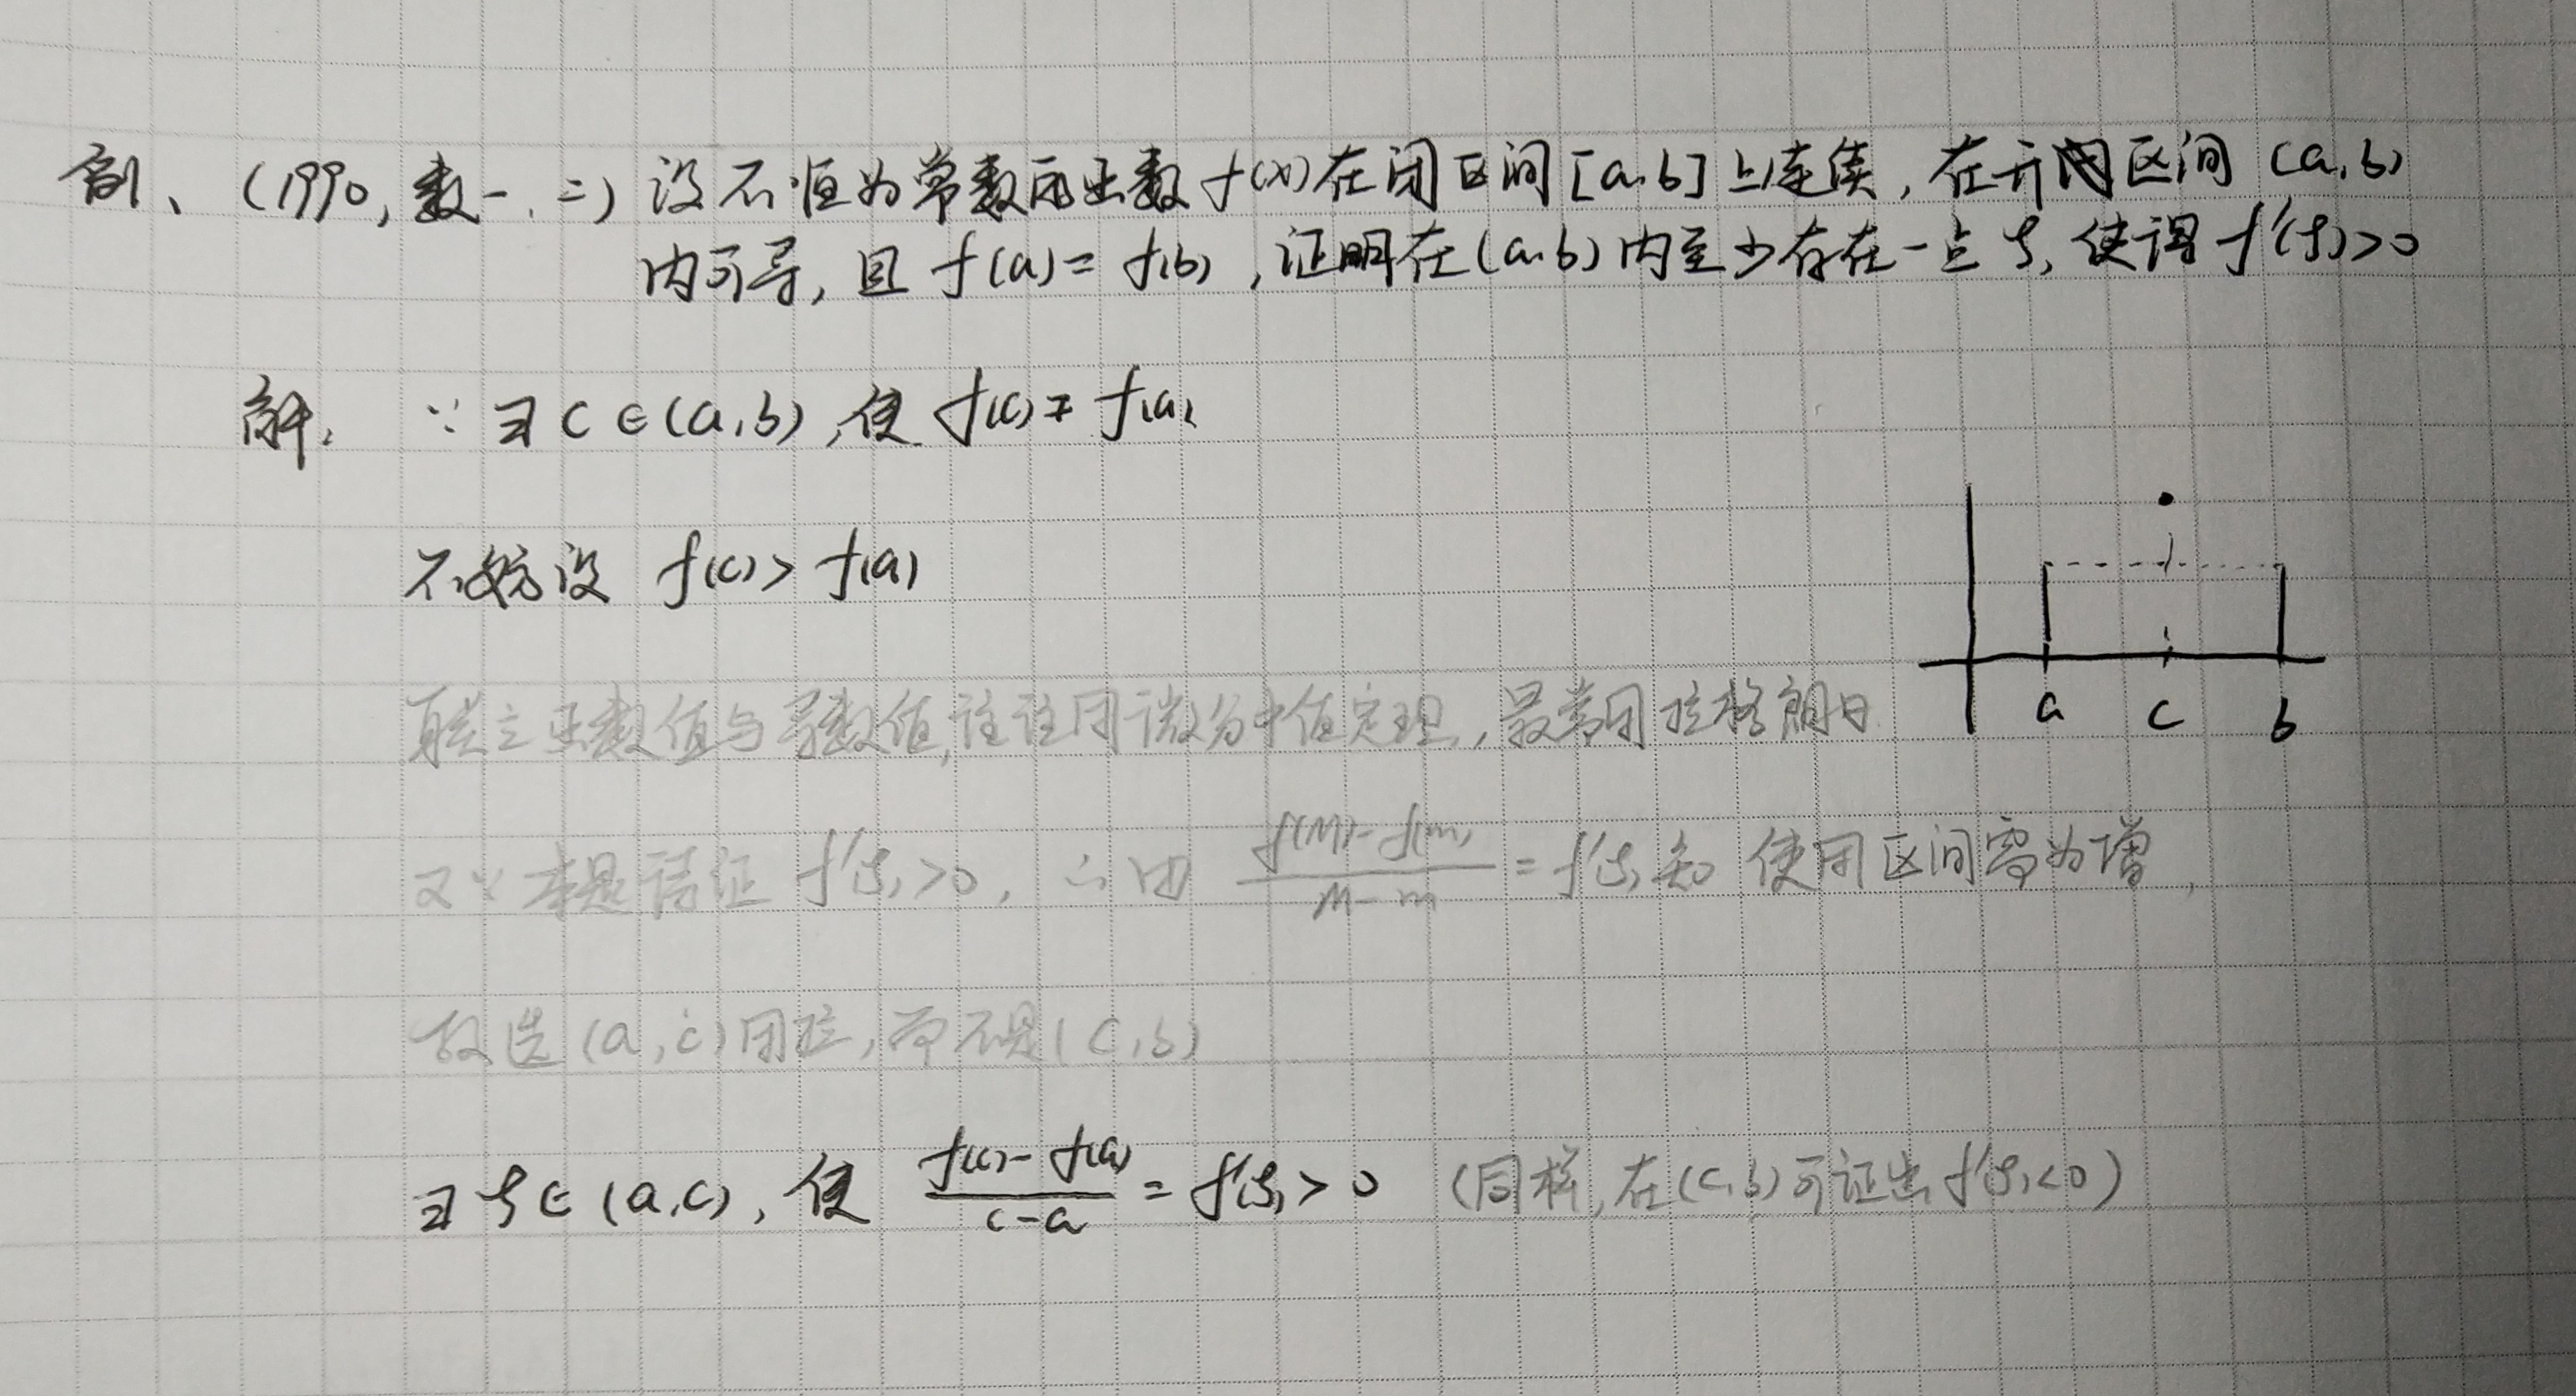 例、(1990,数一、二) 设不恒为常数的函数 f(x) 在闭区间 [a,b] 上连续, 在开区间 (a,b)
内可导, 且 f(a) = f(b), 证明在 (a,b) 内至少存在一点 ξ, 使得 f'(ξ)>0
解. ∵ ∃ c ∈ (a,b), 使 f(c) ≠ f(a)
不妨设 f(c) > f(a)
联立函数值与导数值, 往往用微分中值定理, 最常用拉格朗日
又∵ 本题请证 f'(ξ)>0, ∴ 由 (f(M)-f(m))/(M-m) = f'(ξ) 知 使用区间需为增,
故选 (a,c) 用拉, 而不是 (c,b)
∃ ξ ∈ (a,c), 使 (f(c)-f(a))/(c-a) = f'(ξ) > 0 (同样, 在 (c,b) 可证出 f'(ξ)<0)
a c b